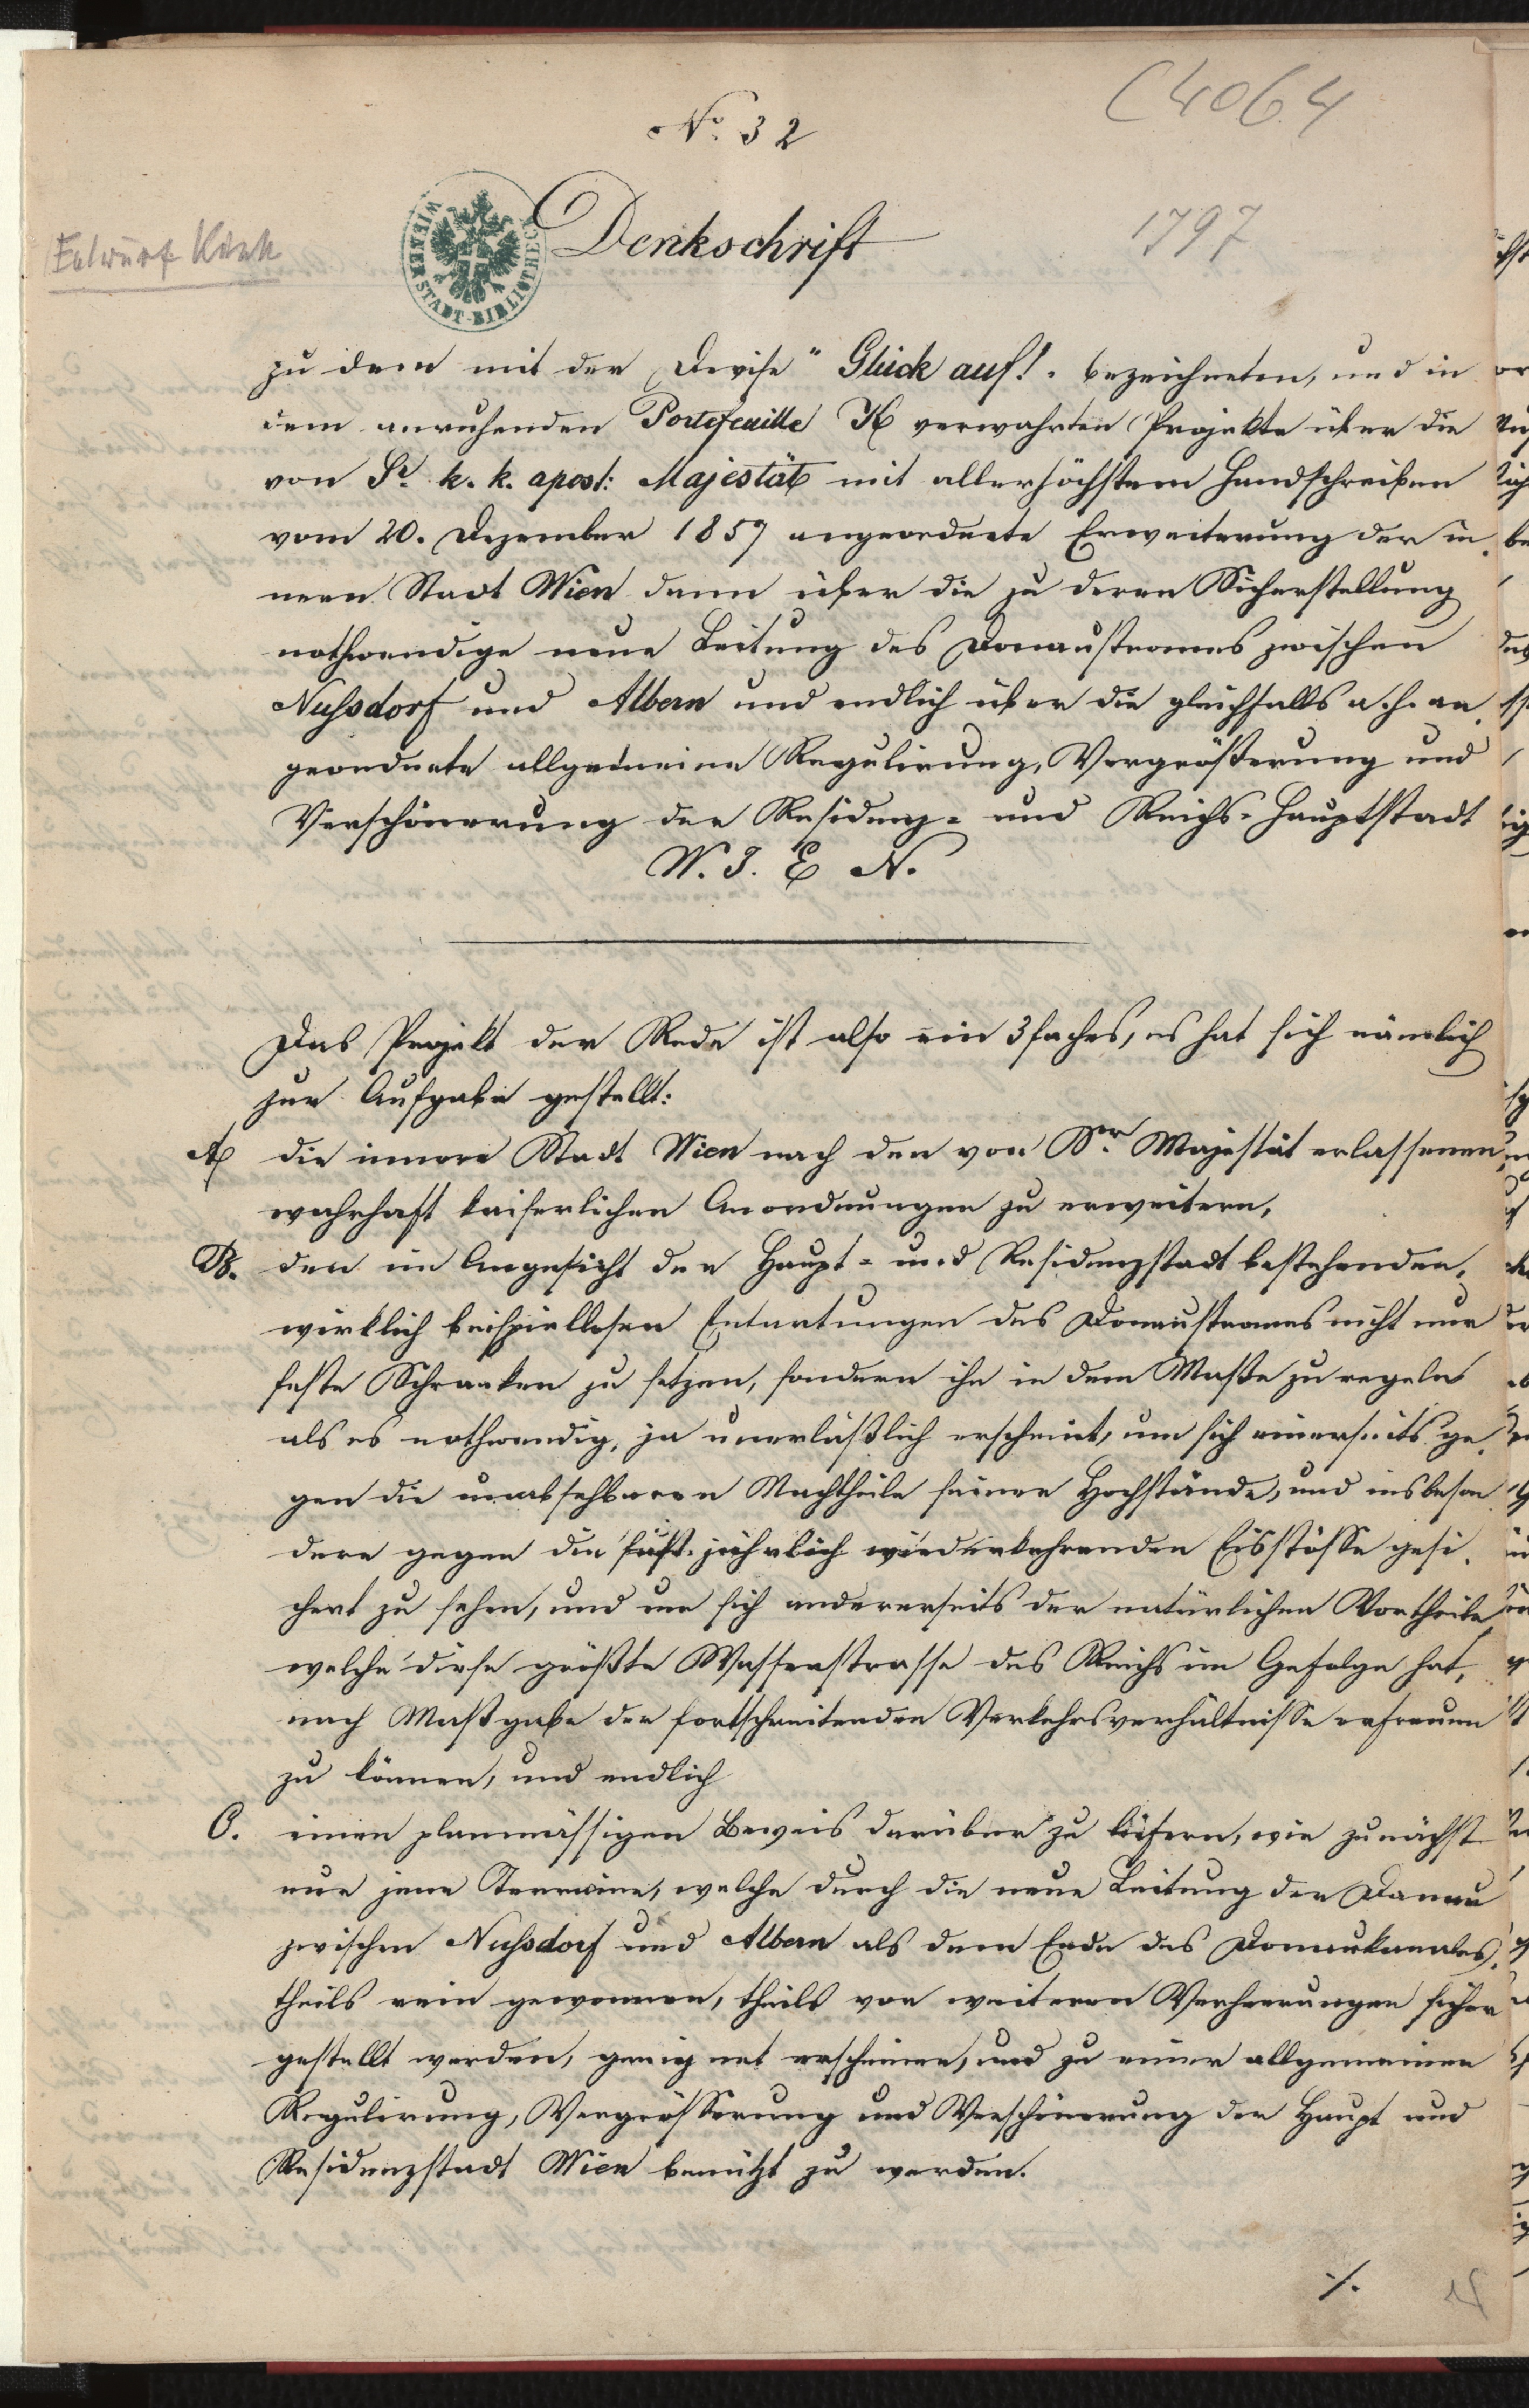 C 4064
No. 32
Denkschrift
1797
Entwurf Kink
WIENER STADT-BIBLIOTHEK
zu dem mit der Devise "Glück auf!" bezeichneten, und in
dem anruhenden Portefeuille K verwahrten Projekte über die
von Sr. k. k. apost: Majestät mit allerhöchstem Handschreiben
vom 20. Dezember 1857 angeordnete Erweiterung der in-
nern Stadt Wien dann über die zu deren Sicherstellung
nothwendige neue Leitung des Donaustromes zwischen
Nussdorf und Albern und endlich über die gleichfalls a. h. an-
geordnete allgemeine Regulirung, Vergrößerung und
Verschönerung der Residenz- und Reichs-Hauptstadt
W. I. E N.
Das Projekt der Rede ist also ein 3faches, es hat sich nämlich
zur Aufgabe gestellt:
A die innere Stadt Wien nach den von Sr. Majestät erlassenen,
wahrhaft kaiserlichen Anordnungen zu erweitern,
B. den im Angesicht der Haupt- und Residenzstadt bestehenden,
wirklich beispiellosen Entartungen des Donaustromes nicht nur
feste Schranken zu setzen, sondern ihn in dem Maße zu regeln
als es nothwendig, ja unerläßlich erscheint, um sich einerseits ge-
gen die unabsehbaren Nachtheile seiner Hochstände, und insbeson
dere gegen die fast jährlich wiederkehrenden Eisstösse gesi-
chert zu sehen, und um sich andererseits der natürlichen Vortheile,
welche diese größte Wasserstrasse des Reichs im Gefolge hat,
nach Maßgabe der fortschreitenden Verkehrsverhältnisse erfreuen
zu können, und endlich
C. einen planmässigen Beweis darüber zu liefern, wie zunächst
nur jene Terraine, welche durch die neue Leitung der Donau
zwischen Nussdorf und Albern als dem Ende des Donaukanales,
theils rein gewonnen, theils vor weiteren Verheerungen sicher
gestellt werden, geeignet erscheinen, und zu einer allgemeinen
Regulirung, Vergrösserung und Verschönerung der Haupt und
Residenzstadt Wien benützt zu werden.
./.